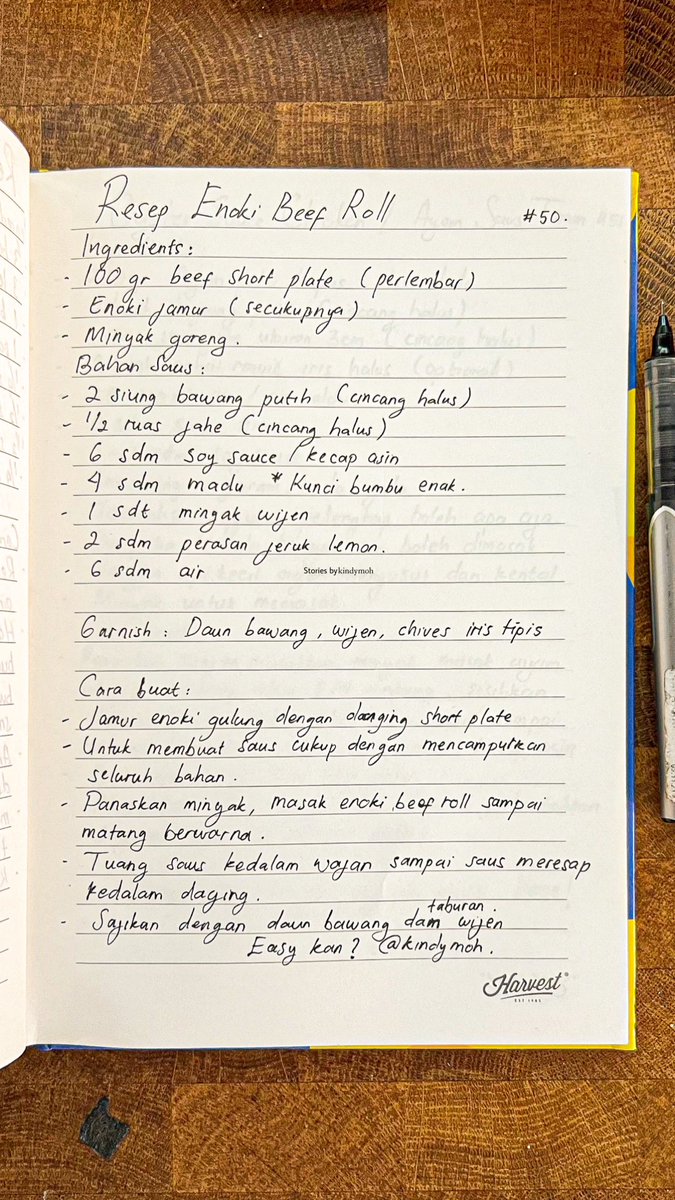 Resep Enoki Beef Roll #50.
Ingredients:
- 100 gr beef short plate (perlembar)
- Enoki jamur (secukupnya)
- Minyak goreng.
Bahan Saus:
- 2 siung bawang putih (cincang halus)
- 1/2 ruas jahe (cincang halus)
- 6 sdm soy sauce / kecap asin
- 4 sdm madu * Kunci bumbu enak.
- 1 sdt mingak wijen
- 2 sdm perasan jeruk lemon.
- 6 sdm air
Stories by kindymoh
Garnish : Daun bawang, wijen, chives iris tipis
Cara buat:
- Jamur enoki gulung dengan daaging short plate
- Untuk membuat saus cukup dengan mencampurkan
seluruh bahan.
- Panaskan minyak, masak enoki beef roll sampai
matang berwarna.
- Tuang saus kedalam wajan sampai saus meresap
kedalam daging.
- Sajikan dengan daun bawang dam taburan. wijen
Easy kan? @kindymoh.
Harvest
EST 1985